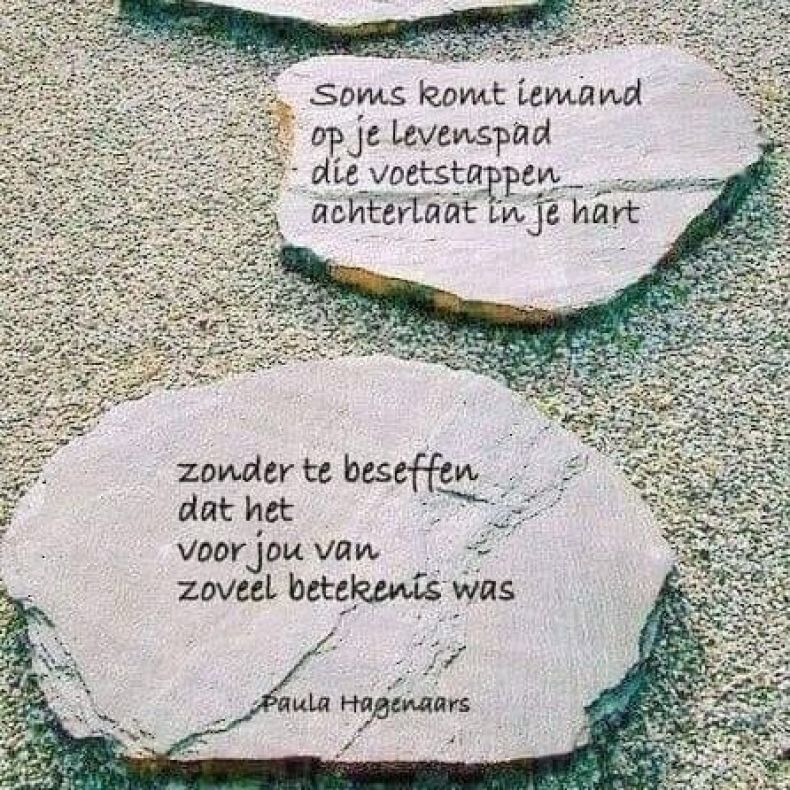 Soms komt iemand
op je levenspad
die voetstappen
achterlaat in je hart
zonder te beseffen
dat het
voor jou van
zoveel betekenis was
Paula Hagenaars